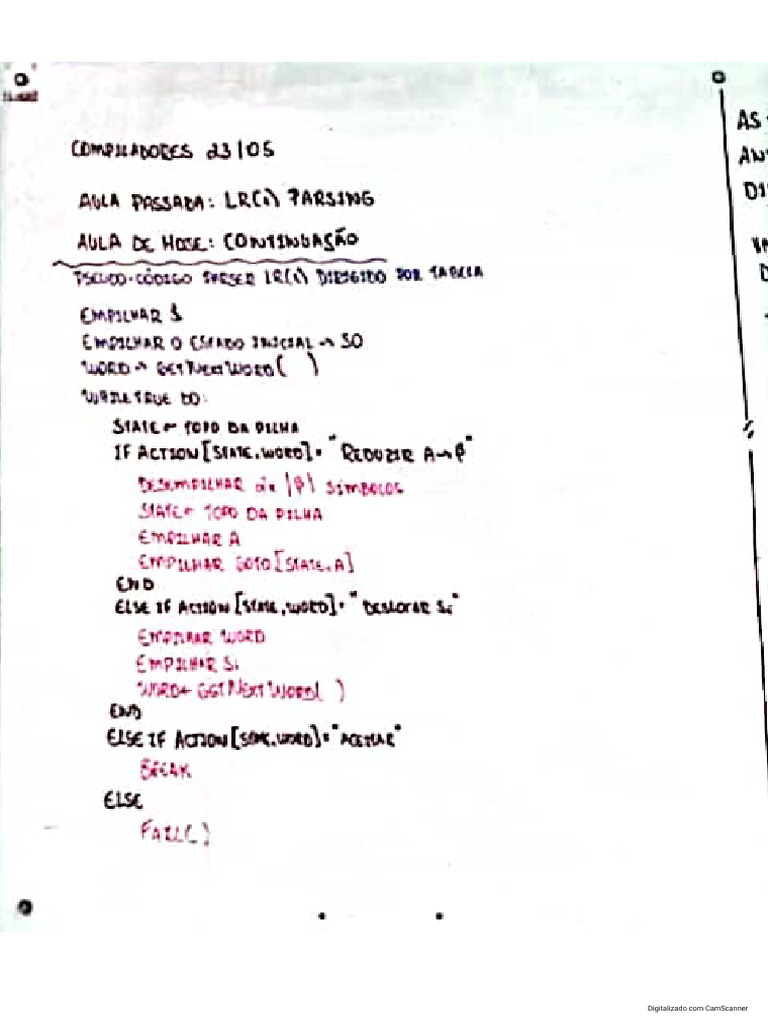 COMPILADORES 23/05
AULA PASSADA: LR(1) PARSING
AULA DE HOJE: CONTINUAÇÃO
PSEUDO-CÓDIGO PARSER LR(1) DIRIGIDO POR TABELA
EMPILHAR $
EMPILHAR O ESTADO INICIAL → S0
WORD → GETNEXTWORD( )
WHILE TRUE DO:
STATE ← TOPO DA PILHA
IF ACTION[STATE,WORD] = "REDUZIR A→β"
DESEMPILHAR 2x |β| SÍMBOLOS
STATE ← TOPO DA PILHA
EMPILHAR A
EMPILHAR GOTO[STATE,A]
END
ELSE IF ACTION[STATE,WORD] = "DESLOCAR Si"
EMPILHAR WORD
EMPILHAR Si
WORD ← GETNEXTWORD( )
END
ELSE IF ACTION[STATE,WORD] = "ACEITAR"
BREAK
ELSE
FAIL( )
AS
Digitalizado com CamScanner